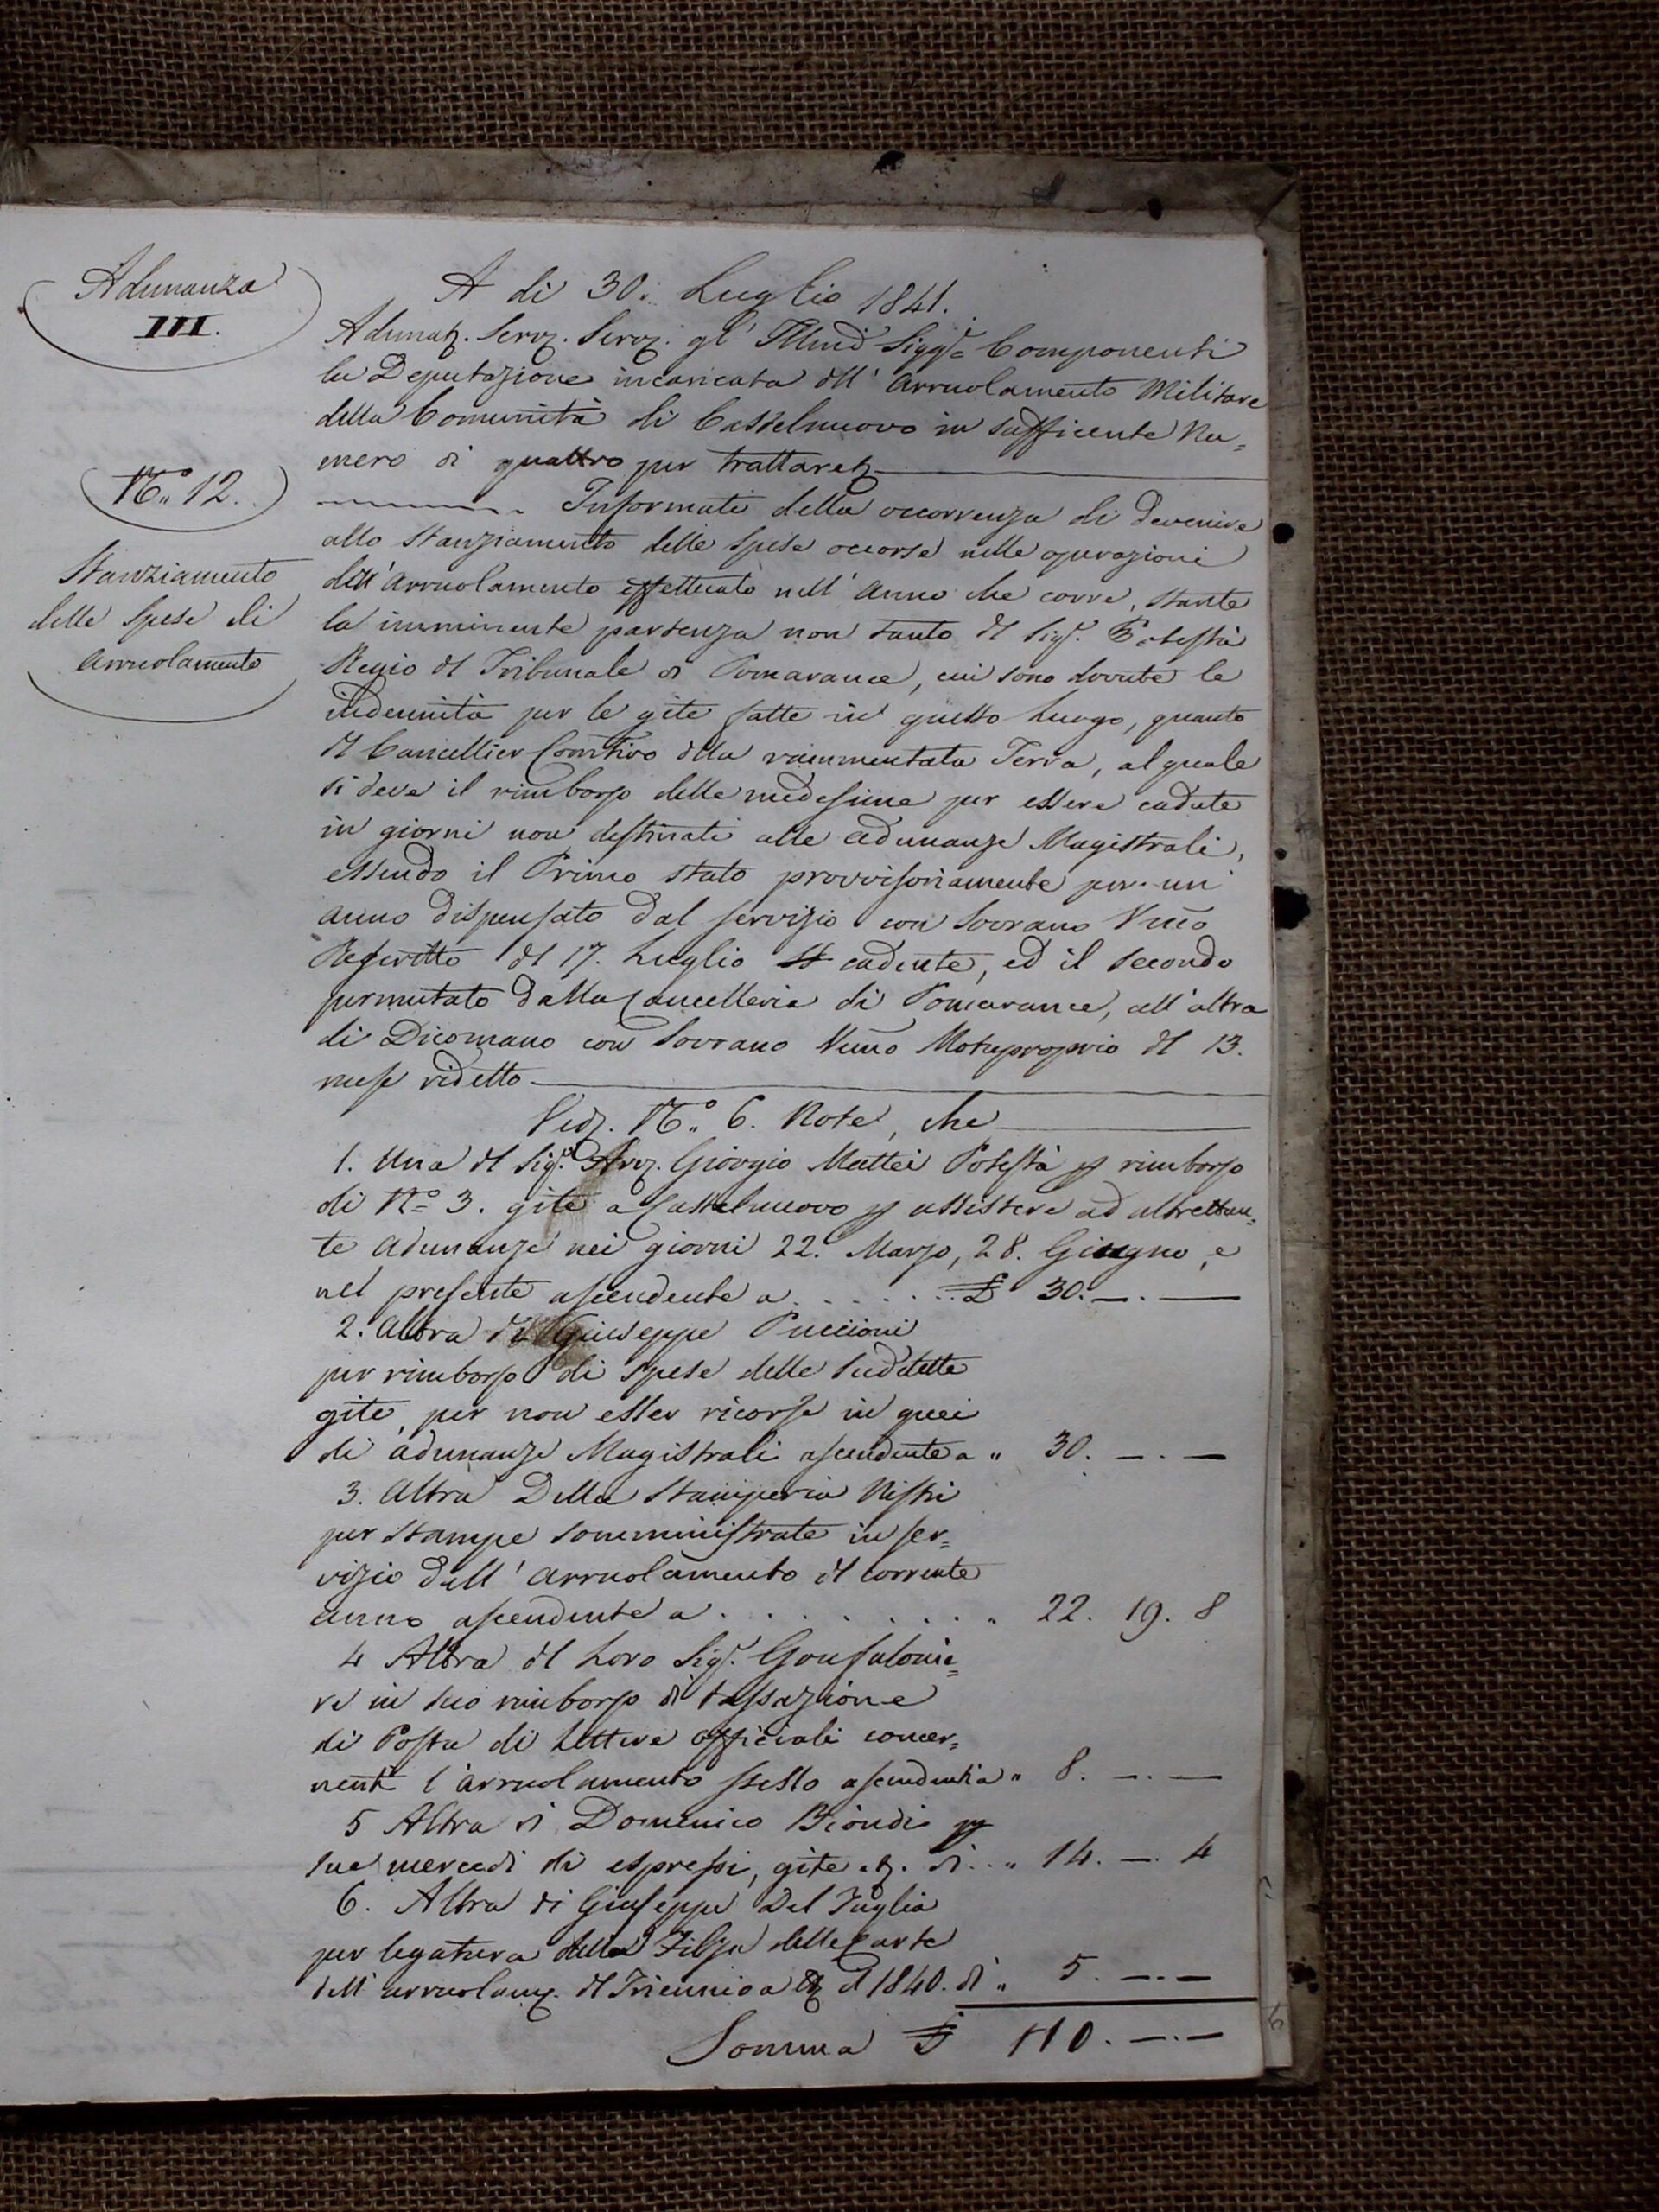 Adunanza
III.
A dì 30. Luglio 1841.
Adunatz. Servz. Servz. gl' Illmi Sigg.ri Componenti
la Deputazione incaricata dll' Arruolamento Militare
della Comunità di Castelnuovo in sufficente Nu=
mero di quattro per trattaretz
N.o 12.
Stanziamento
delle Spese di
Arruolamento
Informati della occorrenza di devenire
allo stanziamento delle spese occorse nelle operazioni
dell'Arruolamento effettuato nell' Anno che corre, stante
la imminente partenza non tanto dl Sigr. Potestà
Regio dl Tribunale di Pomarance, cui sono dovute le
indennità per le gite fatte in questo Luogo, quanto
dl Cancellier Comtivo dlla rammentata Terra, al quale
si deve il rimborso delle medesime per essere cadute
in giorni non destinati alle adunanze Magistrali,
essendo il Primo stato provvisoriamente per un
anno dispensato dal servizio con Sovrano Vmo
Rescritto dl 17. Luglio cadente, ed il secondo
permutato dalla Cancelleria di Pomarance, all'altra
di Dicomano con Sovrano Vmo Motuproprio dl 13.
mese ridetto
Vedz. N.o 6. Note, che
1. Una dl Sigr. Avvz. Giorgio Mattei Potestà p rimborso
di No= 3. gite a Castelnuovo p assistere ad altrettan=
te adunanze nei giorni 22. Marzo, 28. Giugno, e
nel presente ascendente a . . . . . . £ 30. —. —
2. Altra di Giuseppe Puccioni
per rimborso di spese delle suddette
gite, per non esser ricorse in quei
dì adunanze Magistrali ascendente a " 30. —. —
3. Altra Della Stamperia Nistri
per stampe somministrate in ser=
vizio dell' arruolamento dl corrente
anno ascendente a . . . . . . . . " 22. 19. 8
4 Altra dl Loro Sigr. Gonfalonie=
re in suo rimborso di tassazione
di Posta di Lettere officiali concer=
nenti l'arruolamento stesso ascendenti a " 8. —. —
5 Altra di Domenico Biondi p
sue mercedi di espressi, gite .tz. di . . " 14. —. 4
6. Altra di Giuseppe Del Taglia
per legatura della Filza delle Carte
dell' arruolamz. dl Triennio a ttz dl 1840. di " 5. —. —
Somma £ 110. —. —